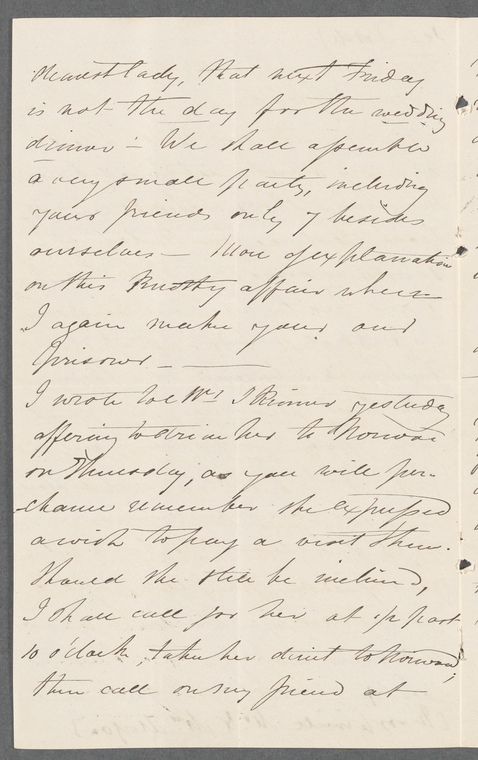 dearest lady, that next Friday
is not the day for the wedding
dinner — We shall assemble
a very small party, including
your friends only 7 besides
ourselves — More of explanation
on this knotty affair when
I again make your
prisoner —
I wrote to Mrs Skinner yesterday
offering to drive her to Norwood
on Thursday, as you will per-
chance remember she expressed
a wish to pay a visit there.
Should she still be inclined,
I shall call for her at 1/2 past
10 o'clock, take her direct to Norwood,
then call on my friend at